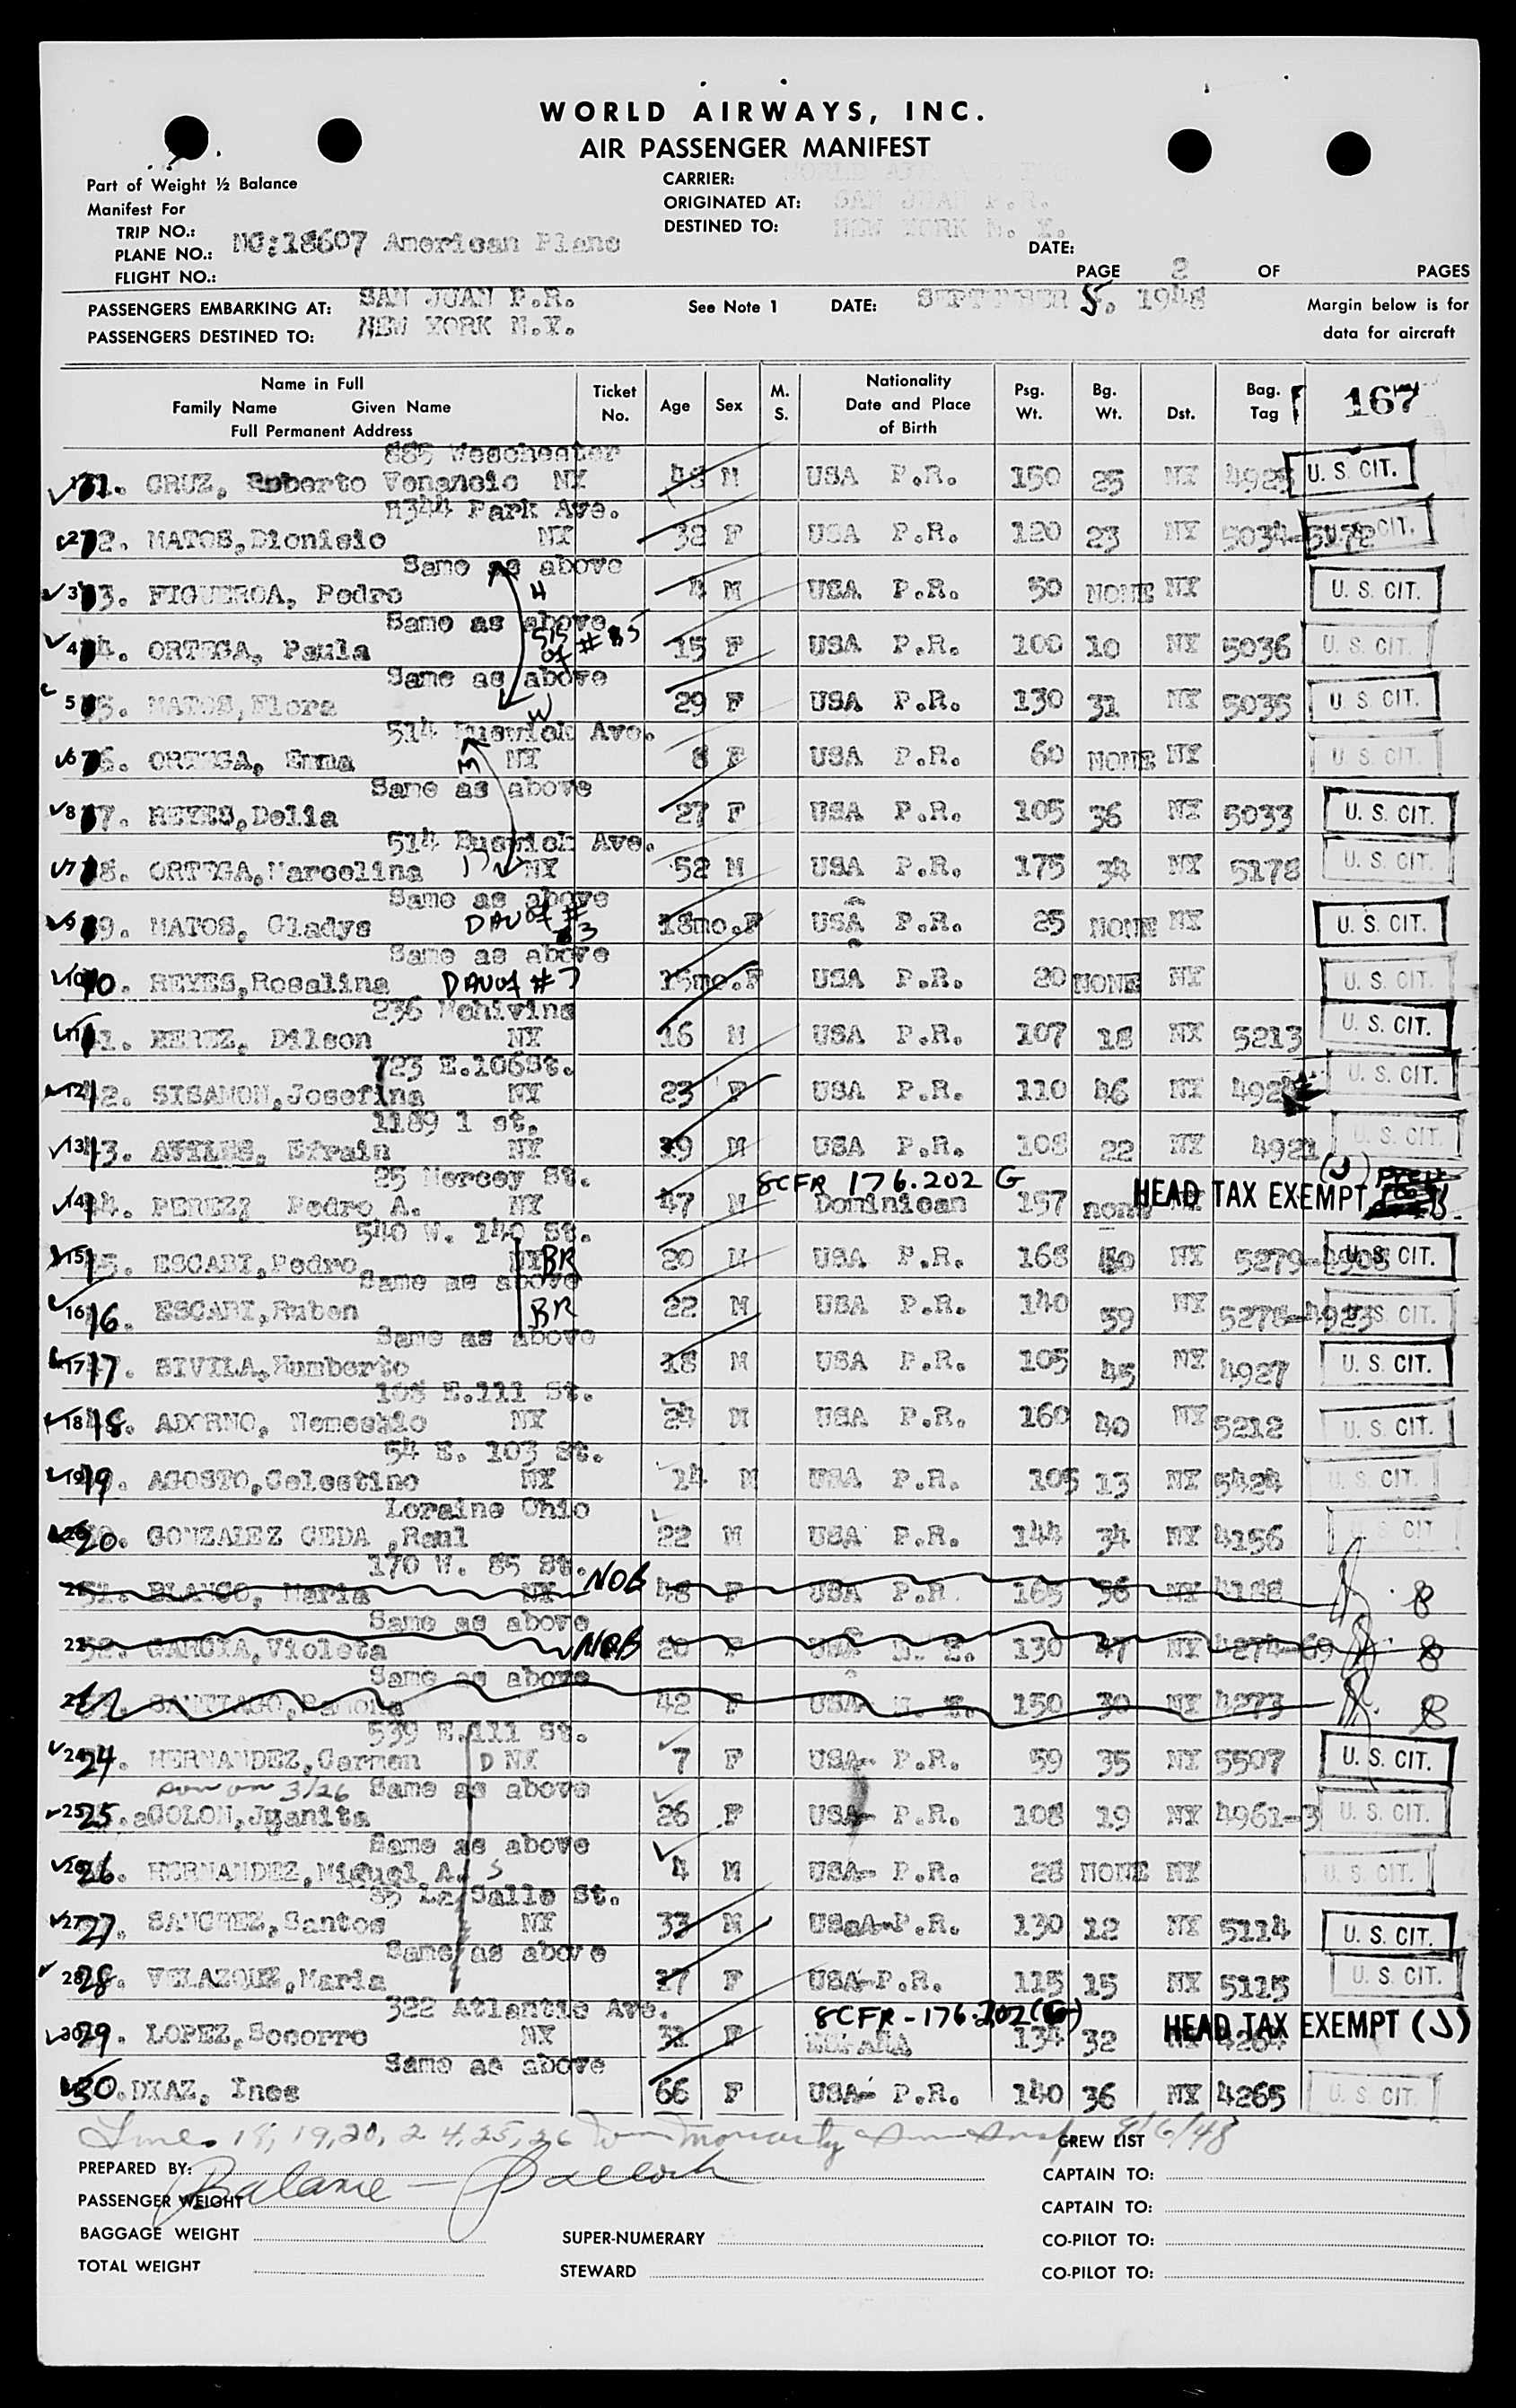 WORLD AIRWAYS, INC.
AIR PASSENGER MANIFEST
Part of Weight ½ Balance
Manifest For
TRIP NO.:
PLANE NO.: NC:18607 American Plane
FLIGHT NO.:
CARRIER: WORLD AIRWAYS INC.
ORIGINATED AT: SAN JUAN P.R.
DESTINED TO: NEW YORK N. Y.
DATE:
PAGE 2 OF PAGES
PASSENGERS EMBARKING AT: SAN JUAN P.R. See Note 1 DATE: SEPTEMBER 5, 1948 Margin below is for
PASSENGERS DESTINED TO: NEW YORK N.Y. data for aircraft
Name in Full
Family Name Given Name
Full Permanent Address
Ticket No. Age Sex M. S. Nationality Date and Place of Birth Psg. Wt. Bg. Wt. Dst. Bag. Tag 167
885 Weschester
1. CRUZ, Roberto Venancio NY M USA P.R. 150 25 NY 4925 U. S. CIT.
Park Ave.
2. MATOS,Dionisio NY 32 F USA P.R. 120 23 NY 5034-5172 CIT.
Same as above
3. FIGUEROA, Pedro H 4 M USA P.R. 50 NONE NY U. S. CIT.
Same as above
4. ORTEGA, Paula SIS of # 15 F USA P.R. 100 10 NY 5036 U. S. CIT.
Same as above
5. MATOS,Flora W 29 F USA P.R. 130 31 NY 5035 U. S. CIT.
514 Buswick Ave.
6. ORTEGA, Emma NY 8 F USA P.R. 60 NONE NY U. S. CIT.
Same as above
8 7. REYES,Delia 27 F USA P.R. 105 36 NY 5033 U. S. CIT.
514 Buswick Ave.
7 8. ORTEGA,Marcelina NY 52 M USA P.R. 175 34 NY 5178 U. S. CIT.
Same as above
9. MATOS, Gladys DAU of # 18mo.F USA P.R. 25 NONE NY U. S. CIT.
Same as above
10. REYES,Rosalina DAU of #7 15mo.F USA P.R. 20 NONE NY U. S. CIT.
236 Mchivins
11. Dilson NY 16 M USA P.R. 107 18 NY 5213 U. S. CIT.
723 E.106St.
12. SISAMON,Josefina NY 23 F USA P.R. 110 46 NY U. S. CIT.
1189 1 st.
13. AVILES, Efrain NY 19 M USA P.R. 108 22 NY 4921 U. S. CIT.
25 Mercey St. 8CFR 176.202 G (J)
14. PEREZ; Pedro A. NY 47 M Dominican 157 none HEAD TAX EXEMPT
540 W. 140 St.
15. ESCABI,Pedro NY BR 20 M USA P.R. 168 40 NY 5279-4905 U. S. CIT.
Same as above
16 16. ESCABI,Ruben BR 22 M USA P.R. 140 59 NY 5278-4923 U. S. CIT.
Same as above
17 17. SIVILA,Humberto 18 M USA P.R. 105 45 NY 4927 U. S. CIT.
108 E.111 St.
18 18. ADORNO, Nemeshio NY 24 M USA P.R. 160 40 NY 5212 U. S. CIT.
54 E. 103 St.
19 19. AGOSTO,Celestino NY 14 M USA P.R. 105 13 NY 5424 U. S. CIT.
Loraine Ohio
20. GONZALEZ CEDA ,Raul 22 M USA P.R. 144 34 NY 4156 CIT
170 W. 85 St.
21 51. BLANCO, Maria NY NOB 48 F USA P.R. 165 36 NY 4188 8
Same as above
22 52. GARCIA,Violeta NOB 20 F USA 130 47 NY 4274-69 8
Same as above
SANTIAGO,Ramona 42 F USA 150 30 NY 4273 8
539 E.111 St.
24 24. HERNANDEZ,Carmen D NY 7 F USA- P.R. 59 35 NY 5507 U. S. CIT.
3/26 Same as above
25 25. COLON,Juanita 26 F USA- P.R. 108 19 NY 4961-3 U. S. CIT.
Same as above
26 26. HERNANDEZ,Miguel A. S 4 M USA- P.R. 28 NONE NY U. S. CIT.
85 La Salle St.
27 27. SANCHEZ,Santos NY 33 M USA-P.R. 130 12 NY 5114 U. S. CIT.
Same as above
28 28. VELAZQUEZ,Maria 27 F USA-P.R. 115 15 NY 5115 U. S. CIT.
322 Atlantic Ave. 8CFR-176.202(G)
29. LOPEZ,Socorro NY 31 F ESPAÑA 134 32 4264 HEAD TAX EXEMPT (J)
Same as above
30. DIAZ, Ines 66 F USA- P.R. 140 36 NY 4265 U. S. CIT.
Lines 18, 19, 20, 24, 25, 26 Wm Moriarty 9/6/48
CREW LIST
PREPARED BY: Balance — CAPTAIN TO:
PASSENGER WEIGHT CAPTAIN TO:
BAGGAGE WEIGHT SUPER-NUMERARY CO-PILOT TO:
TOTAL WEIGHT STEWARD CO-PILOT TO: